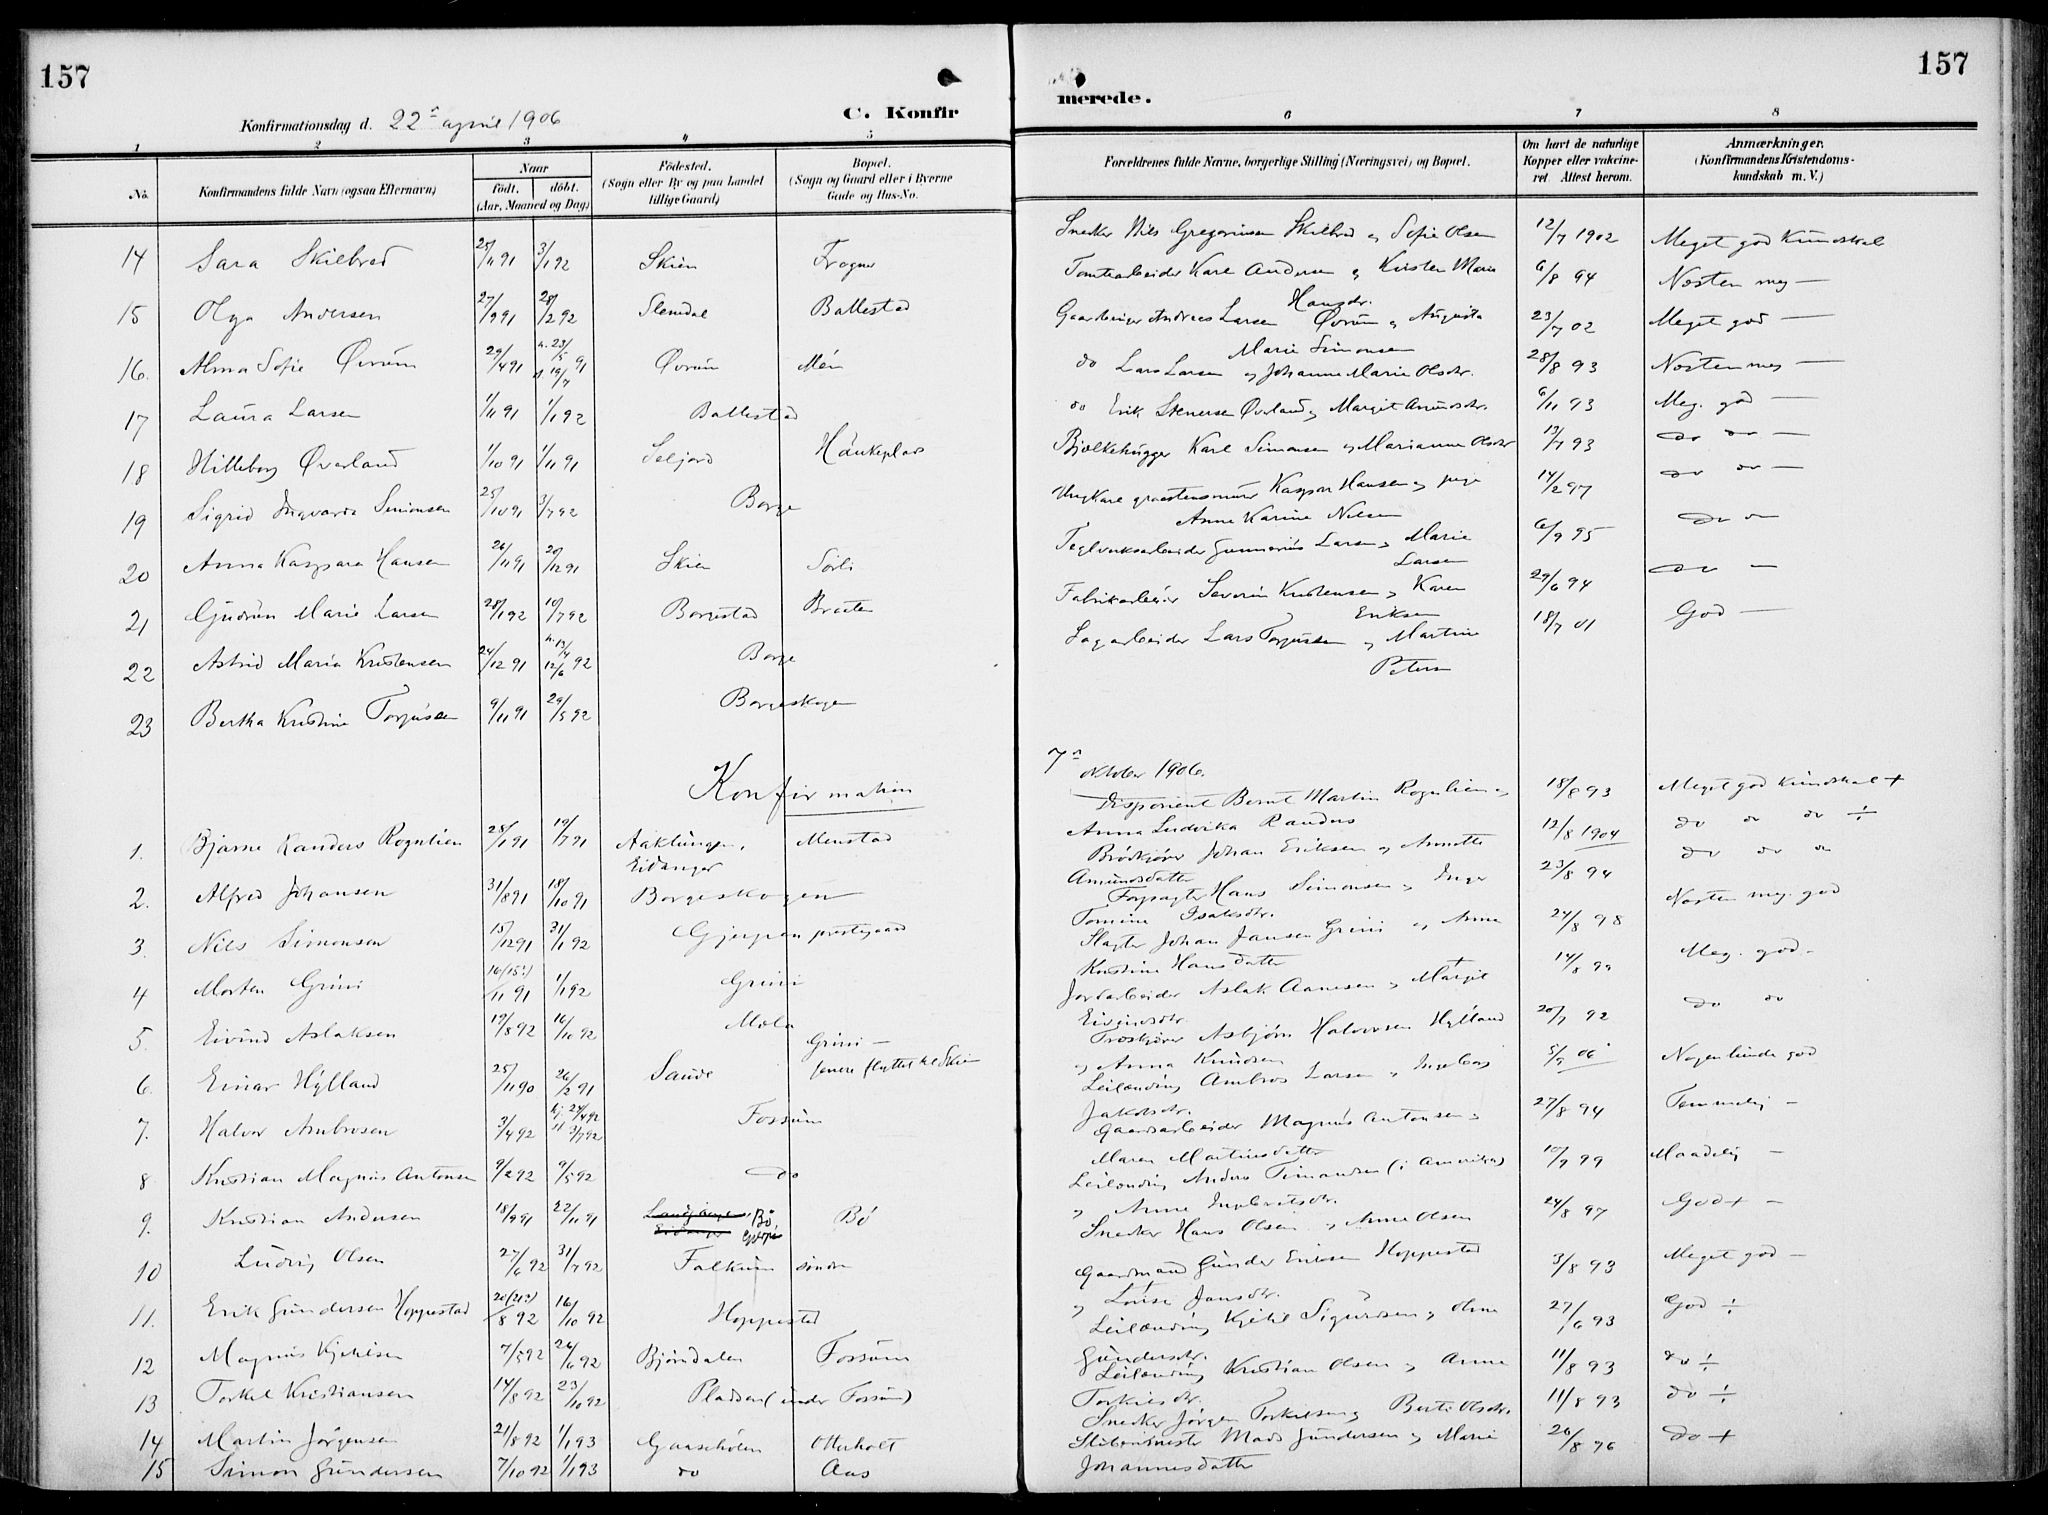 157
157
Konfirmationsdag d. 22n april 1906
C. Konfir
merede.
1 2 3 4 5
6 7 8
No.
Konfirmandens fulde Navn (ogsaa Efternavn)
Naar
födt. döbt.
(Aar, Maaned og Dag)
Födested.
(Sogn eller By og paa Landet
tillige Gaard)
Bopæl.
(Sogn og Gaard eller i Byerne
Gade og Hus-No.
Forældrenes fulde Navne, borgerlige Stilling (Næringsvei) og Bopæl.
Om havt de naturlige
Kopper eller vakcine-
ret. Attest herom.
Anmærkninger.
(Konfirmandens Kristendoms-
kundskab m. V.)
14 Sara Skilbred 25/11 91 3/1 92 Skien Frogner
15 Olga Andersen 27/9 91 28/2 92 Slemdal Ballestad
16. Alma Sofie Övrum 29/4 91 h. 23/5 91 Övrum Mén
17 Laura Larsen 1/11 91 1/1 92 Ballestad
18 Hilleborg Överland 1/10 91 1/11 91 Seljord Haukeplads
19 Sigrid Ingvarda Simonsen 25/10 91 3/7 92 Borge
20 Anna Kaspara Hansen 26/11 91 20/12 91 Skien Sörli
21 Gudrun Marie Larsen 28/1 92 10/7 92 Borgestad Braaten
22 Astrid Maria Kristensen 24/12 91 h. 13/4 12/6 92 Borge
23 Bertha Kristine Torjussen 9/11 91 29/5 92 Borgeskogen
Snedker Nils Gregoriusen Skilbred og Sofie Olsen 12/7 1902 Meget god Kundskab
Tomtearbeider Karl Andersen og Kirsten Marie 6/8 94 Næsten meg —
Hansdr.
Gaardeier Andreas Larsen Övrum og Augusta 23/7 02 Meget god —
Marie Simonsen
do Lars Larsen og Johanne Marie Olsdtr. 28/8 93 Næsten meg —
do Erik Stenersen Överland og Margit Amundsdr. 6/11 93 Meg. god —
Bjelkehugger Karl Simonsen og Marianne Olsdtr 13/7 93 do do —
Ungkarl graastensmurer Kaspar Hansen og pige 14/2 97 do do —
Anne Karine Nilsen
Teglverksarbeider Gunnerius Larsen og Marie 6/9 95 do do
Larsen
Fabrikarbeider Severin Kristensen og Karen 29/6 94 do —
Eriksen
Sagarbeider Lars Torjussen og Martine 18/7 01 God —
Peters
Konfirmation
7n oktober 1906.
1. Bjarne Randers Rognlien 28/1 91 19/7 91 Aaklungen, Menstad
Eidanger
2. Alfred Johansen 31/8 91 18/10 91 Borgeskogen
3. Nils Simonsen 15/12 91 31/1 92 Gjerpen prestegaard
4 Morten Grini 16 (15?)/11 91 1/1 92 Grini
5. Eivind Aslaksen 19/8 92 16/10 92 Mæla
Grini —
6. Einar Hylland 25/11 90 26/2 91 Saude senere flyttet til Skien
7. Halvor Ambrosen 3/4 92 hj. 24/4 92 3/7 92 Fossum
8 Kristian Magnus Antonsen 9/2 92 9/5 92 do
9. Kristian Andersen 18/9 91 22/11 91 Bö Gjerpen Bö
10 Ludvig Olsen 27/6 92 31/7 92 Falkum söndre
11. Erik Gundersen Hoppestad 20 (21?)/8 92 16/10 92 Hoppestad
12 Magnus Kjetilsen 7/5 92 26/6 92 Björndalen Fossum
13 Torkel Kristiansen 14/8 92 23/10 92 Pladsen (under Fossum)
14 Martin Jörgensen 21/8 92 1/1 93 Gaasehölen Otterholt
15 Simon Gundersen 7/10 92 1/1 93 do Aas
Disponent Bernt Martin Rognlien og 18/8 93 Meget god Kundskab +
Anna Ludvika Randers
Brödkjörer Johan Eriksen og Annette 12/8 1904 do do do ÷
Amundsdatter
Forpagter Hans Simonsen og Inger 23/8 94 do do do
Tomine Isaksdtr.
Slagter Johan Jansen Grini og Anne 24/8 98 Næsten meg. god
Kristine Hansdatter
Jordarbeider Aslak Aanesen og Margit 14/8 99 Meg. god -
Eivindsdtr.
Træskjærer Asbjörn Halvorsen Hylland 20/7 92 do do
og Anna Knudsen
Leilænding Ambros Larsen og Ingeborg 5/9 06 Nogenlunde god
Jakobsdtr.
Gaardsarbeider Magnus Antonsen og 27/8 94 Temmelig —
Maren Martinsdatter
Leilænding Anders Timandsen (i Amerika) 10/9 99 Maadelig —
og Anne Ingebretsdtr.
Snedker Hans Olsen og Anne Olsen 24/8 97 God + —
Gaardmand Gunder Eriksen Hoppestad 3/8 93 Meget god —
og Louise Jansdtr.
Leilænding Kjetil Sigurdsen og Anne 27/6 93 God ÷
Gundersdtr.
Leilænding Kristian Olsen og Anne 11/8 93 do ÷
Torkilsdtr.
Snedker Jörgen Torkilsen og Berte Olsdtr. 11/8 93 do ÷
Mads Gundersen og Marie 26/8 96 do +
Johannesdatter